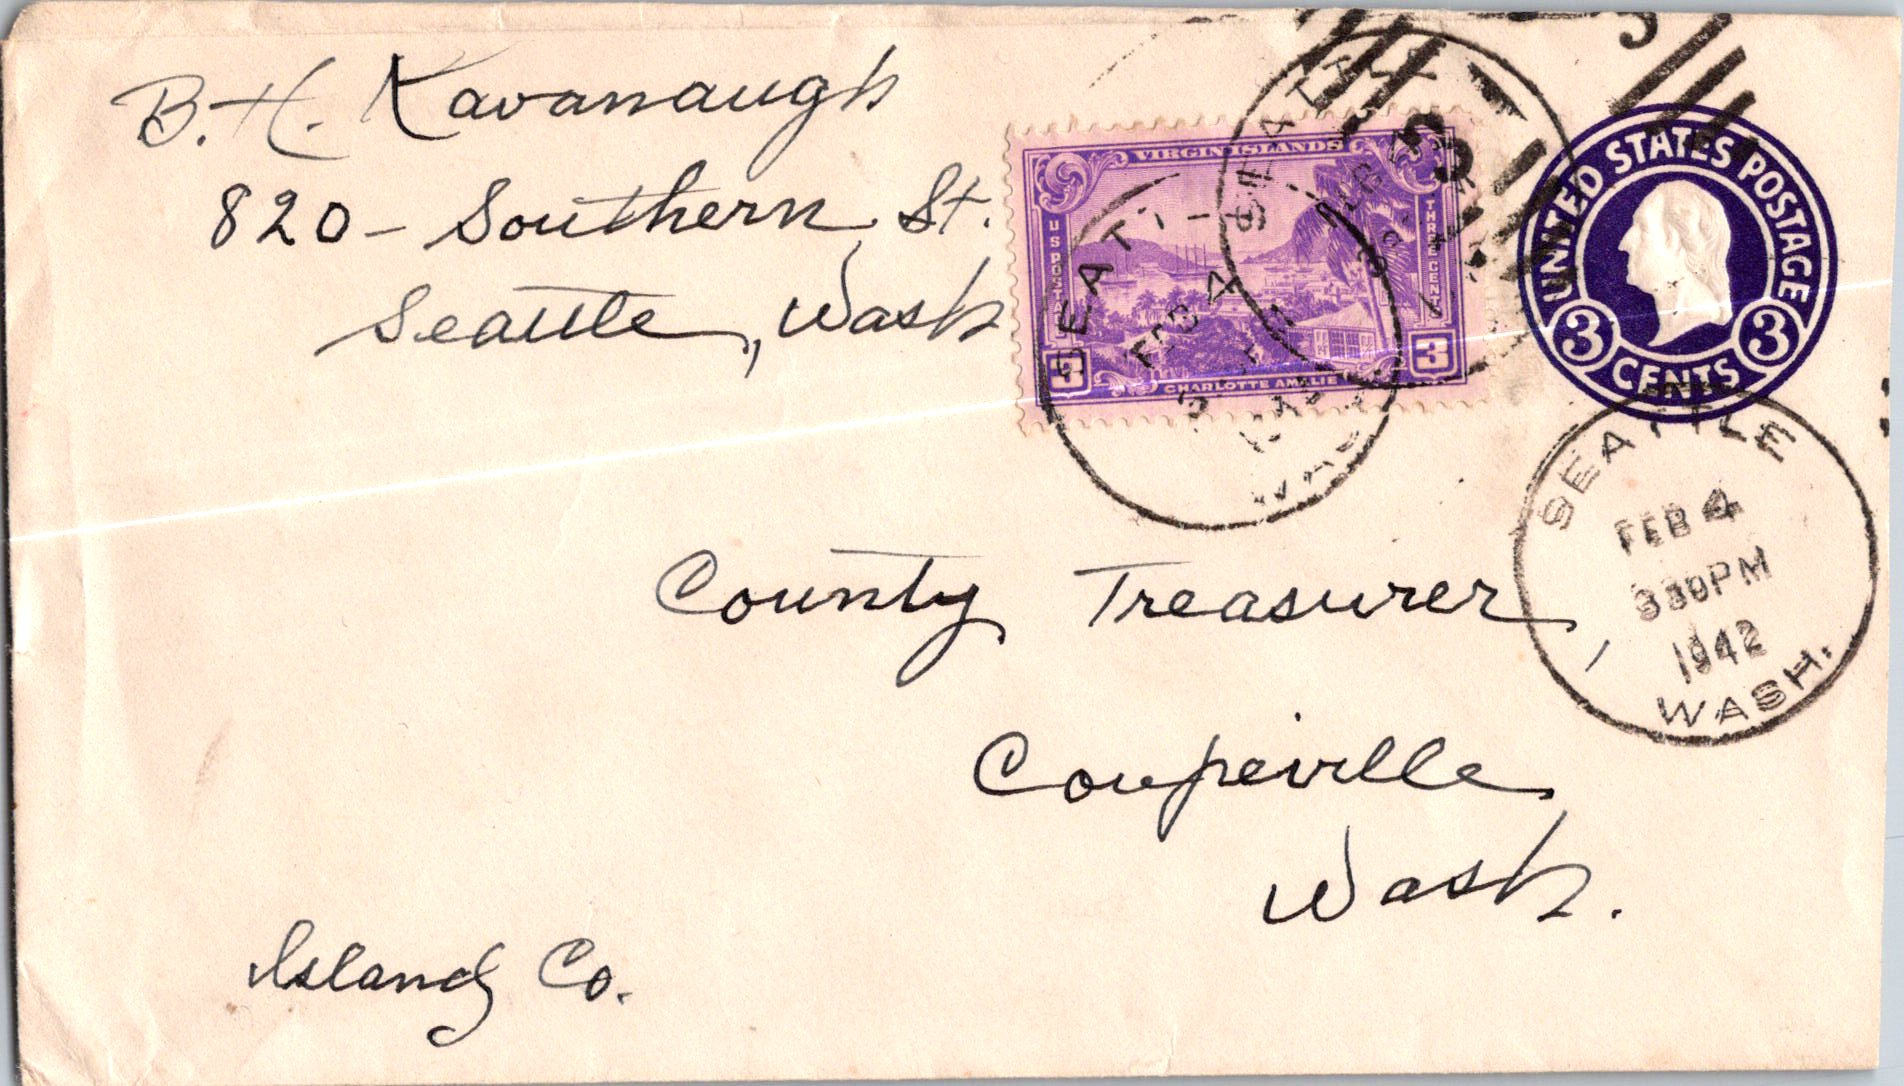 B.H. Kavanaugh
820 - Southern St.
Seattle, Wash
VIRGIN ISLANDS
U S POSTAGE
THREE CENTS
3
3
CHARLOTTE AMALIE
SEATTLE
FEB 4
WASH.
SEATTLE
FEB 4
UNITED STATES POSTAGE
3 3
CENTS
SEATTLE
FEB 4
330PM
1942
1 WASH.
County Treasurer
Coupeville
Wash.
Island Co.